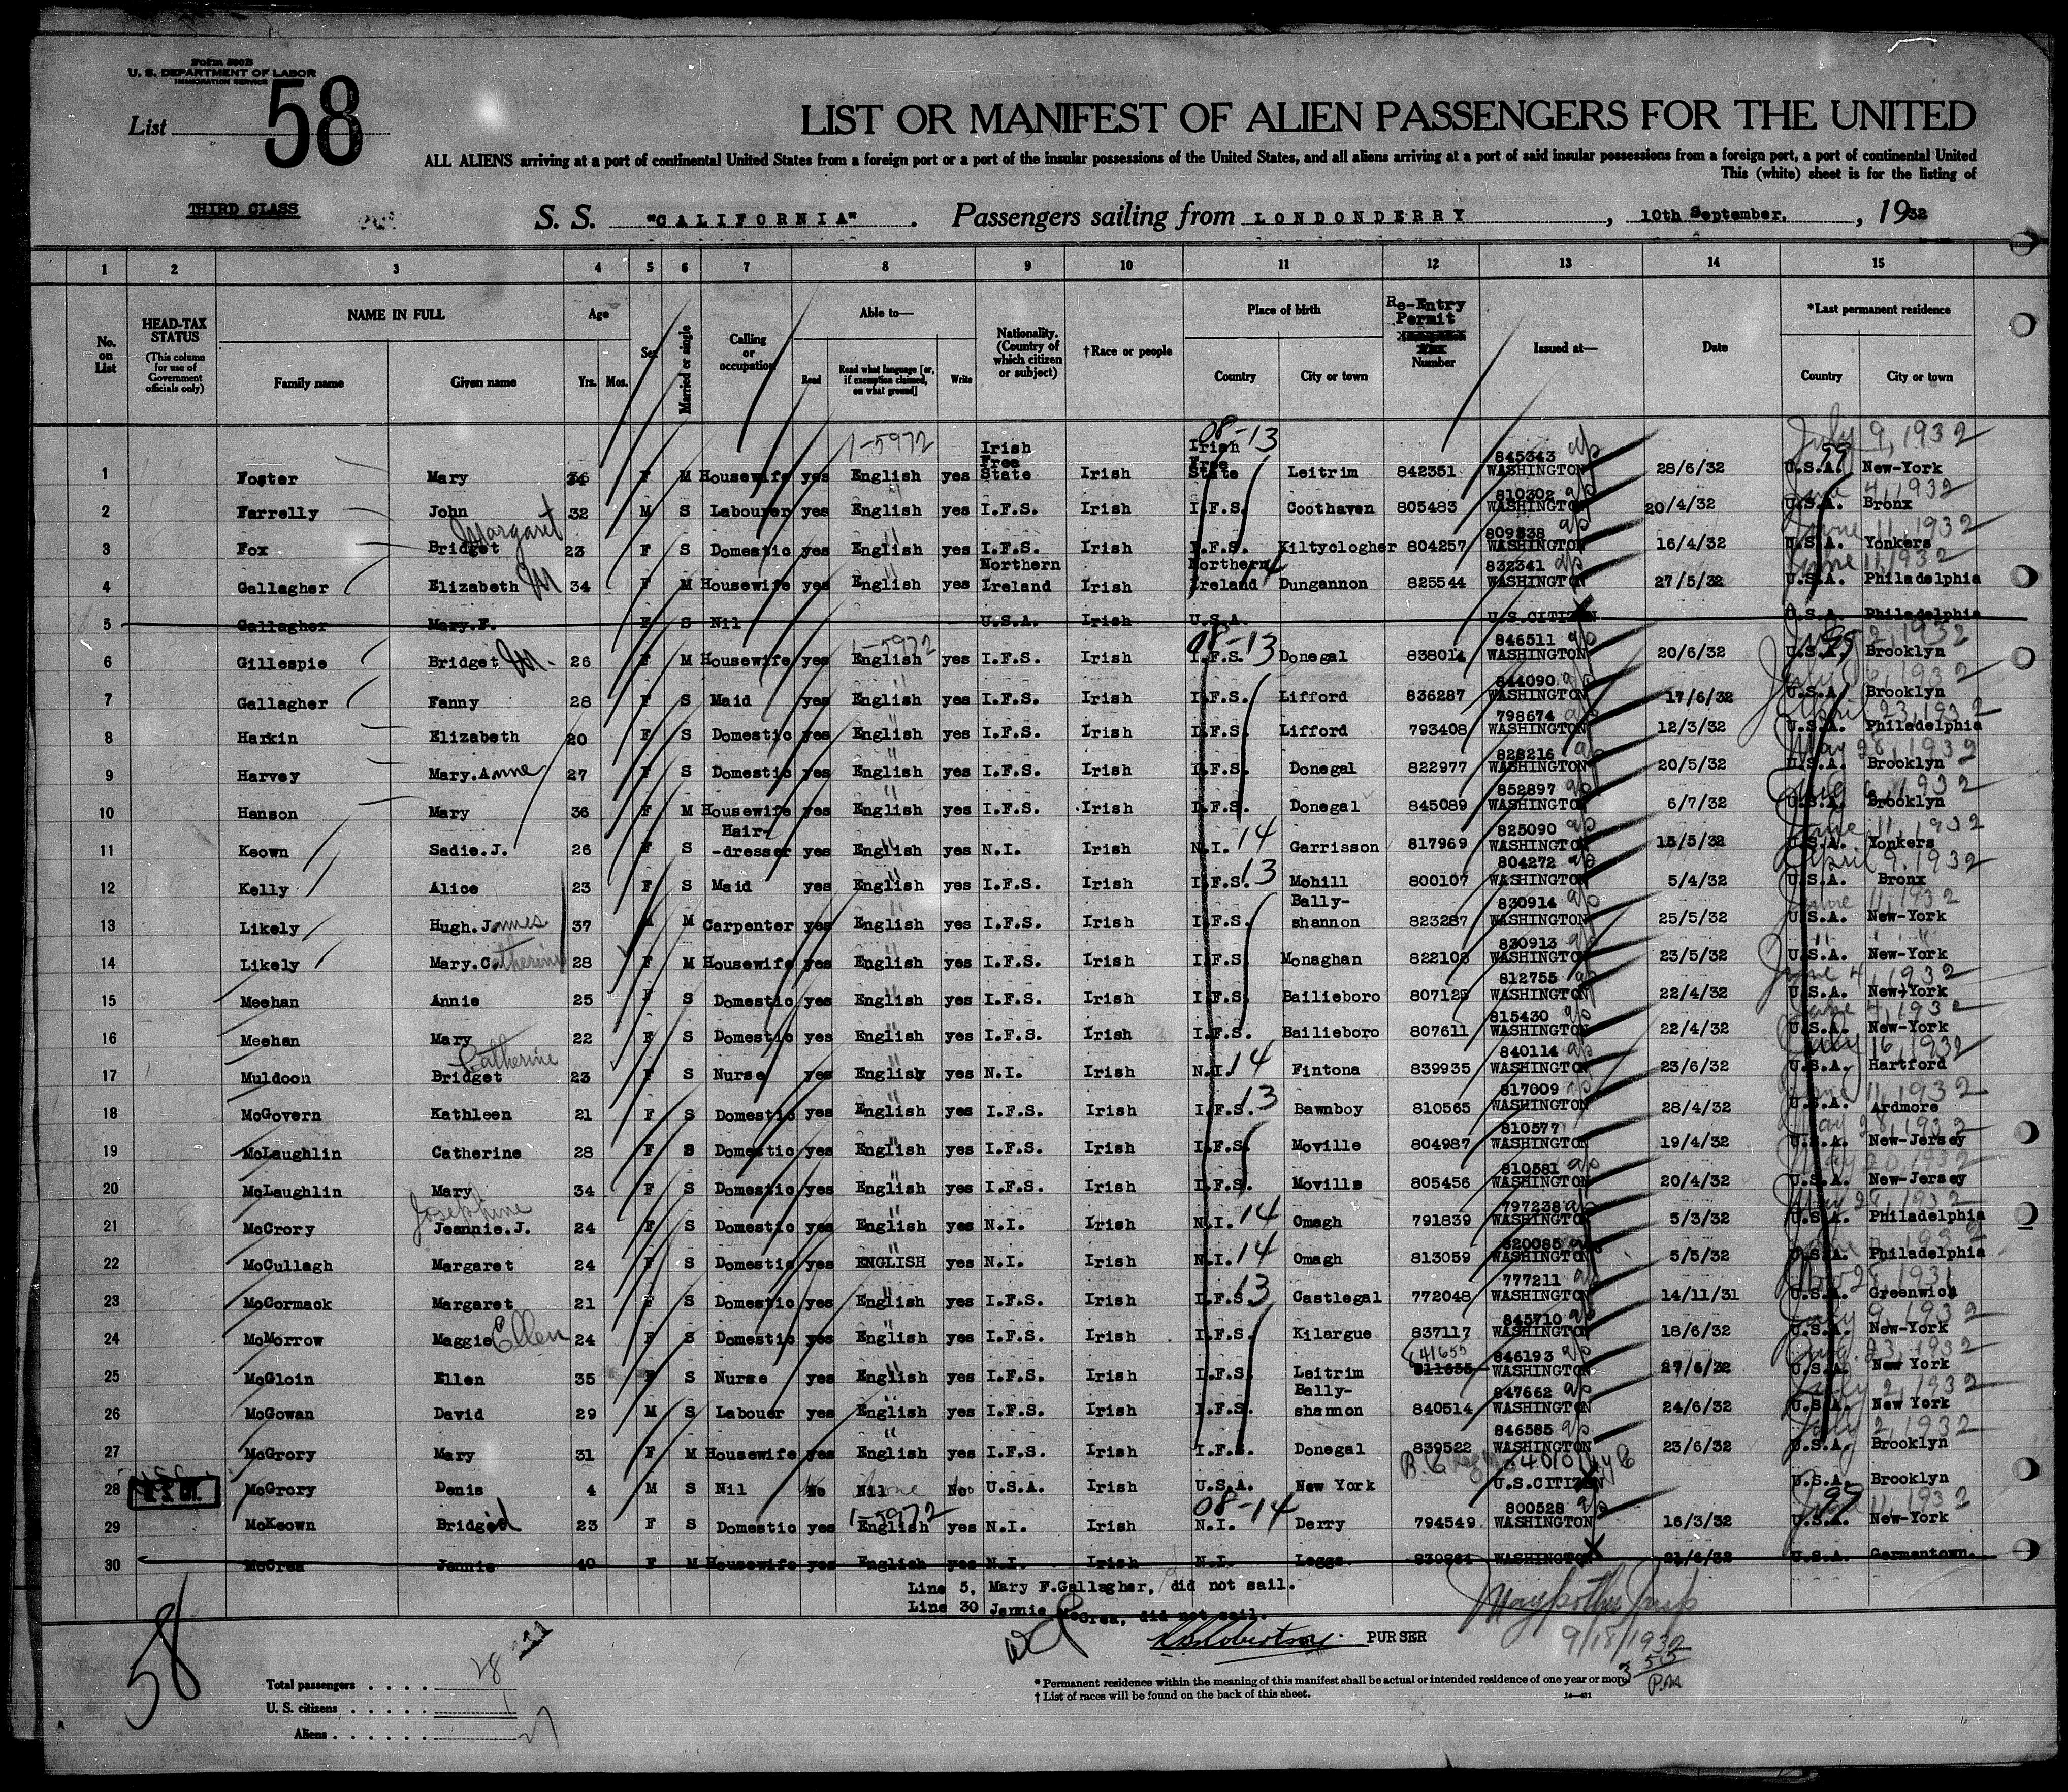 Form 500B
U. S. DEPARTMENT OF LABOR
IMMIGRATION SERVICE
List 58
LIST OR MANIFEST OF ALIEN PASSENGERS FOR THE UNITED
ALL ALIENS arriving at a port of continental United States from a foreign port or a port of the insular possessions of the United States, and all aliens arriving at a port of said insular possessions from a foreign port, a port of continental United
This (white) sheet is for the listing of
THIRD CLASS
S. S. "CALIFORNIA". Passengers sailing from LONDONDERRY, 10th September., 1932
1 2 3 4 5 6 7 8 9 10 11 12 13 14 15
No. on List
HEAD-TAX STATUS
(This column for use of Government officials only)
NAME IN FULL
Family name Given name
Age
Yrs. Mos.
Sex
Married or single
Calling or occupation
Able to—
Read
Read what language [or, if exemption claimed, on what ground]
Write
Nationality. (Country of which citizen or subject)
†Race or people
Place of birth
Country City or town
Re-Entry Permit
Number
Issued at—
Date
*Last permanent residence
Country City or town
1-5972 08-13 July 9, 1932
1 Foster Mary 36 F M Housewife yes English yes Irish Free State Irish Irish Free State Leitrim 842351 845343 WASHINGTON 28/6/32 U.S.A. New-York
June 4, 1932
2 Farrelly John 32 M S Labourer yes English yes I.F.S. Irish I.F.S. Coothaven 805483 810302 WASHINGTON 20/4/32 U.S.A. Bronx
June 11, 1932
3 Fox Bridget Margaret 23 F S Domestic yes English yes I.F.S. Irish I.F.S. Kiltyclogher 804257 809838 WASHINGTON 16/4/32 U.S.A. Yonkers
June 11, 1932
4 Gallagher Elizabeth M 34 F M Housewife yes English yes Northern Ireland Irish Northern Ireland Dungannon 825544 832341 WASHINGTON 27/5/32 U.S.A. Philadelphia
5 Gallagher Mary.F. F S Nil U.S.A. Irish U.S.A. U.S.CITIZEN U.S.A. Philadelphia
1-5972 08-13 July 2, 1932
6 Gillespie Bridget M. 26 F M Housewife yes English yes I.F.S. Irish I.F.S. Donegal 838014 846511 WASHINGTON 20/6/32 U.S.A. Brooklyn
1932
7 Gallagher Fanny 28 F S Maid yes English yes I.F.S. Irish I.F.S. Lifford 836287 844090 WASHINGTON 17/6/32 U.S.A. Brooklyn
April 23, 1932
8 Harkin Elizabeth 20 F S Domestic yes English yes I.F.S. Irish I.F.S. Lifford 793408 798674 WASHINGTON 12/3/32 U.S.A. Philadelphia
May 28, 1932
9 Harvey Mary.Anne 27 F S Domestic yes English yes I.F.S. Irish I.F.S. Donegal 822977 828216 WASHINGTON 20/5/32 U.S.A. Brooklyn
Aug 6, 1932
10 Hanson Mary 36 F M Housewife yes English yes I.F.S. Irish I.F.S. Donegal 845089 852897 WASHINGTON 6/7/32 U.S.A. Brooklyn
June 11, 1932
11 Keown Sadie.J. 26 F S Hair-dresser yes English yes N.I. Irish N.I. 14 Garrisson 817969 825090 WASHINGTON 15/5/32 U.S.A. Yonkers
April 9, 1932
12 Kelly Alice 23 F S Maid yes English yes I.F.S. Irish I.F.S. 13 Mohill 800107 804272 WASHINGTON 5/4/32 U.S.A. Bronx
June 11, 1932
13 Likely Hugh.James 37 M M Carpenter yes English yes I.F.S. Irish I.F.S. Bally-shannon 823287 830914 WASHINGTON 25/5/32 U.S.A. New-York
14 Likely Mary.Catherine 28 F M Housewife yes English yes I.F.S. Irish I.F.S. Monaghan 822108 830913 WASHINGTON 23/5/32 U.S.A. New-York
June 4, 1932
15 Meehan Annie 25 F S Domestic yes English yes I.F.S. Irish I.F.S. Bailieboro 807125 812755 WASHINGTON 22/4/32 U.S.A. New-York
June 4, 1932
16 Meehan Mary 22 F S Domestic yes English yes I.F.S. Irish I.F.S. Bailieboro 807611 815430 WASHINGTON 22/4/32 U.S.A. New-York
July 16, 1932
17 Muldoon Bridget Catherine 23 F S Nurse yes English yes N.I. Irish N.I. 14 Fintona 839935 840114 WASHINGTON 23/6/32 U.S.A. Hartford
June 11, 1932
18 McGovern Kathleen 21 F S Domestic yes English yes I.F.S. Irish I.F.S. 13 Bawnboy 810565 817009 WASHINGTON 28/4/32 U.S.A. Ardmore
May 28, 1932
19 McLaughlin Catherine 28 F S Domestic yes English yes I.F.S. Irish I.F.S. Moville 804987 810577 WASHINGTON 19/4/32 U.S.A. New-Jersey
May 20, 1932
20 McLaughlin Mary 34 F S Domestic yes English yes I.F.S. Irish I.F.S. Moville 805456 810581 WASHINGTON 20/4/32 U.S.A. New-Jersey
May 28, 1932
21 McCrory Jeannie.J. Josephine 24 F S Domestic yes English yes N.I. Irish N.I. 14 Omagh 791839 797238 WASHINGTON 5/3/32 U.S.A. Philadelphia
1932
22 McCullagh Margaret 24 F S Domestic yes ENGLISH yes N.I. Irish N.I. 14 Omagh 813059 820085 WASHINGTON 5/5/32 U.S.A. Philadelphia
Nov 28, 1931
23 McCormack Margaret 21 F S Domestic yes English yes I.F.S. Irish I.F.S. 13 Castlegal 772048 777211 WASHINGTON 14/11/31 U.S.A. Greenwich
July 9, 1932
24 McMorrow Maggie Ellen 24 F S Domestic yes English yes I.F.S. Irish I.F.S. Kilargue 837117 845710 WASHINGTON 18/6/32 U.S.A. New-York
Aug. 23, 1932
25 McGloin Ellen 35 F S Nurse yes English yes I.F.S. Irish I.F.S. Leitrim 841655 811655 846193 WASHINGTON 27/6/32 U.S.A. New York
July 2, 1932
26 McGowan David 29 M S Labouer yes English yes I.F.S. Irish I.F.S. Bally-shannon 840514 847662 WASHINGTON 24/6/32 U.S.A. New York
July 2, 1932
27 McGrory Mary 31 F M Housewife yes English yes I.F.S. Irish I.F.S. Donegal 839522 846585 WASHINGTON 23/6/32 U.S.A. Brooklyn
28 McGrory Denis 4 M S Nil No Nil None No U.S.A. Irish U.S.A. New York U.S.CITIZEN U.S.A. Brooklyn
1-5972 08-14 11, 1932
29 McKeown Bridgid 23 F S Domestic yes English yes N.I. Irish N.I. Derry 794549 800528 WASHINGTON 16/3/32 U.S.A. New-York
30 McCrea Jennie 40 F M Housewife yes English yes N.I. Irish N.I. Leggs. 839864 WASHINGTON 21/6/32 U.S.A. Germantown.
Line 5, Mary F.Gallagher, did not sail.
Line 30 Jennie McCrea, did not sail.
PURSER
9/18/1932
58
Total passengers . . . . 28
U. S. citizens . . . . . 1
Aliens . . . . . . 27
* Permanent residence within the meaning of this manifest shall be actual or intended residence of one year or more.
† List of races will be found on the back of this sheet.